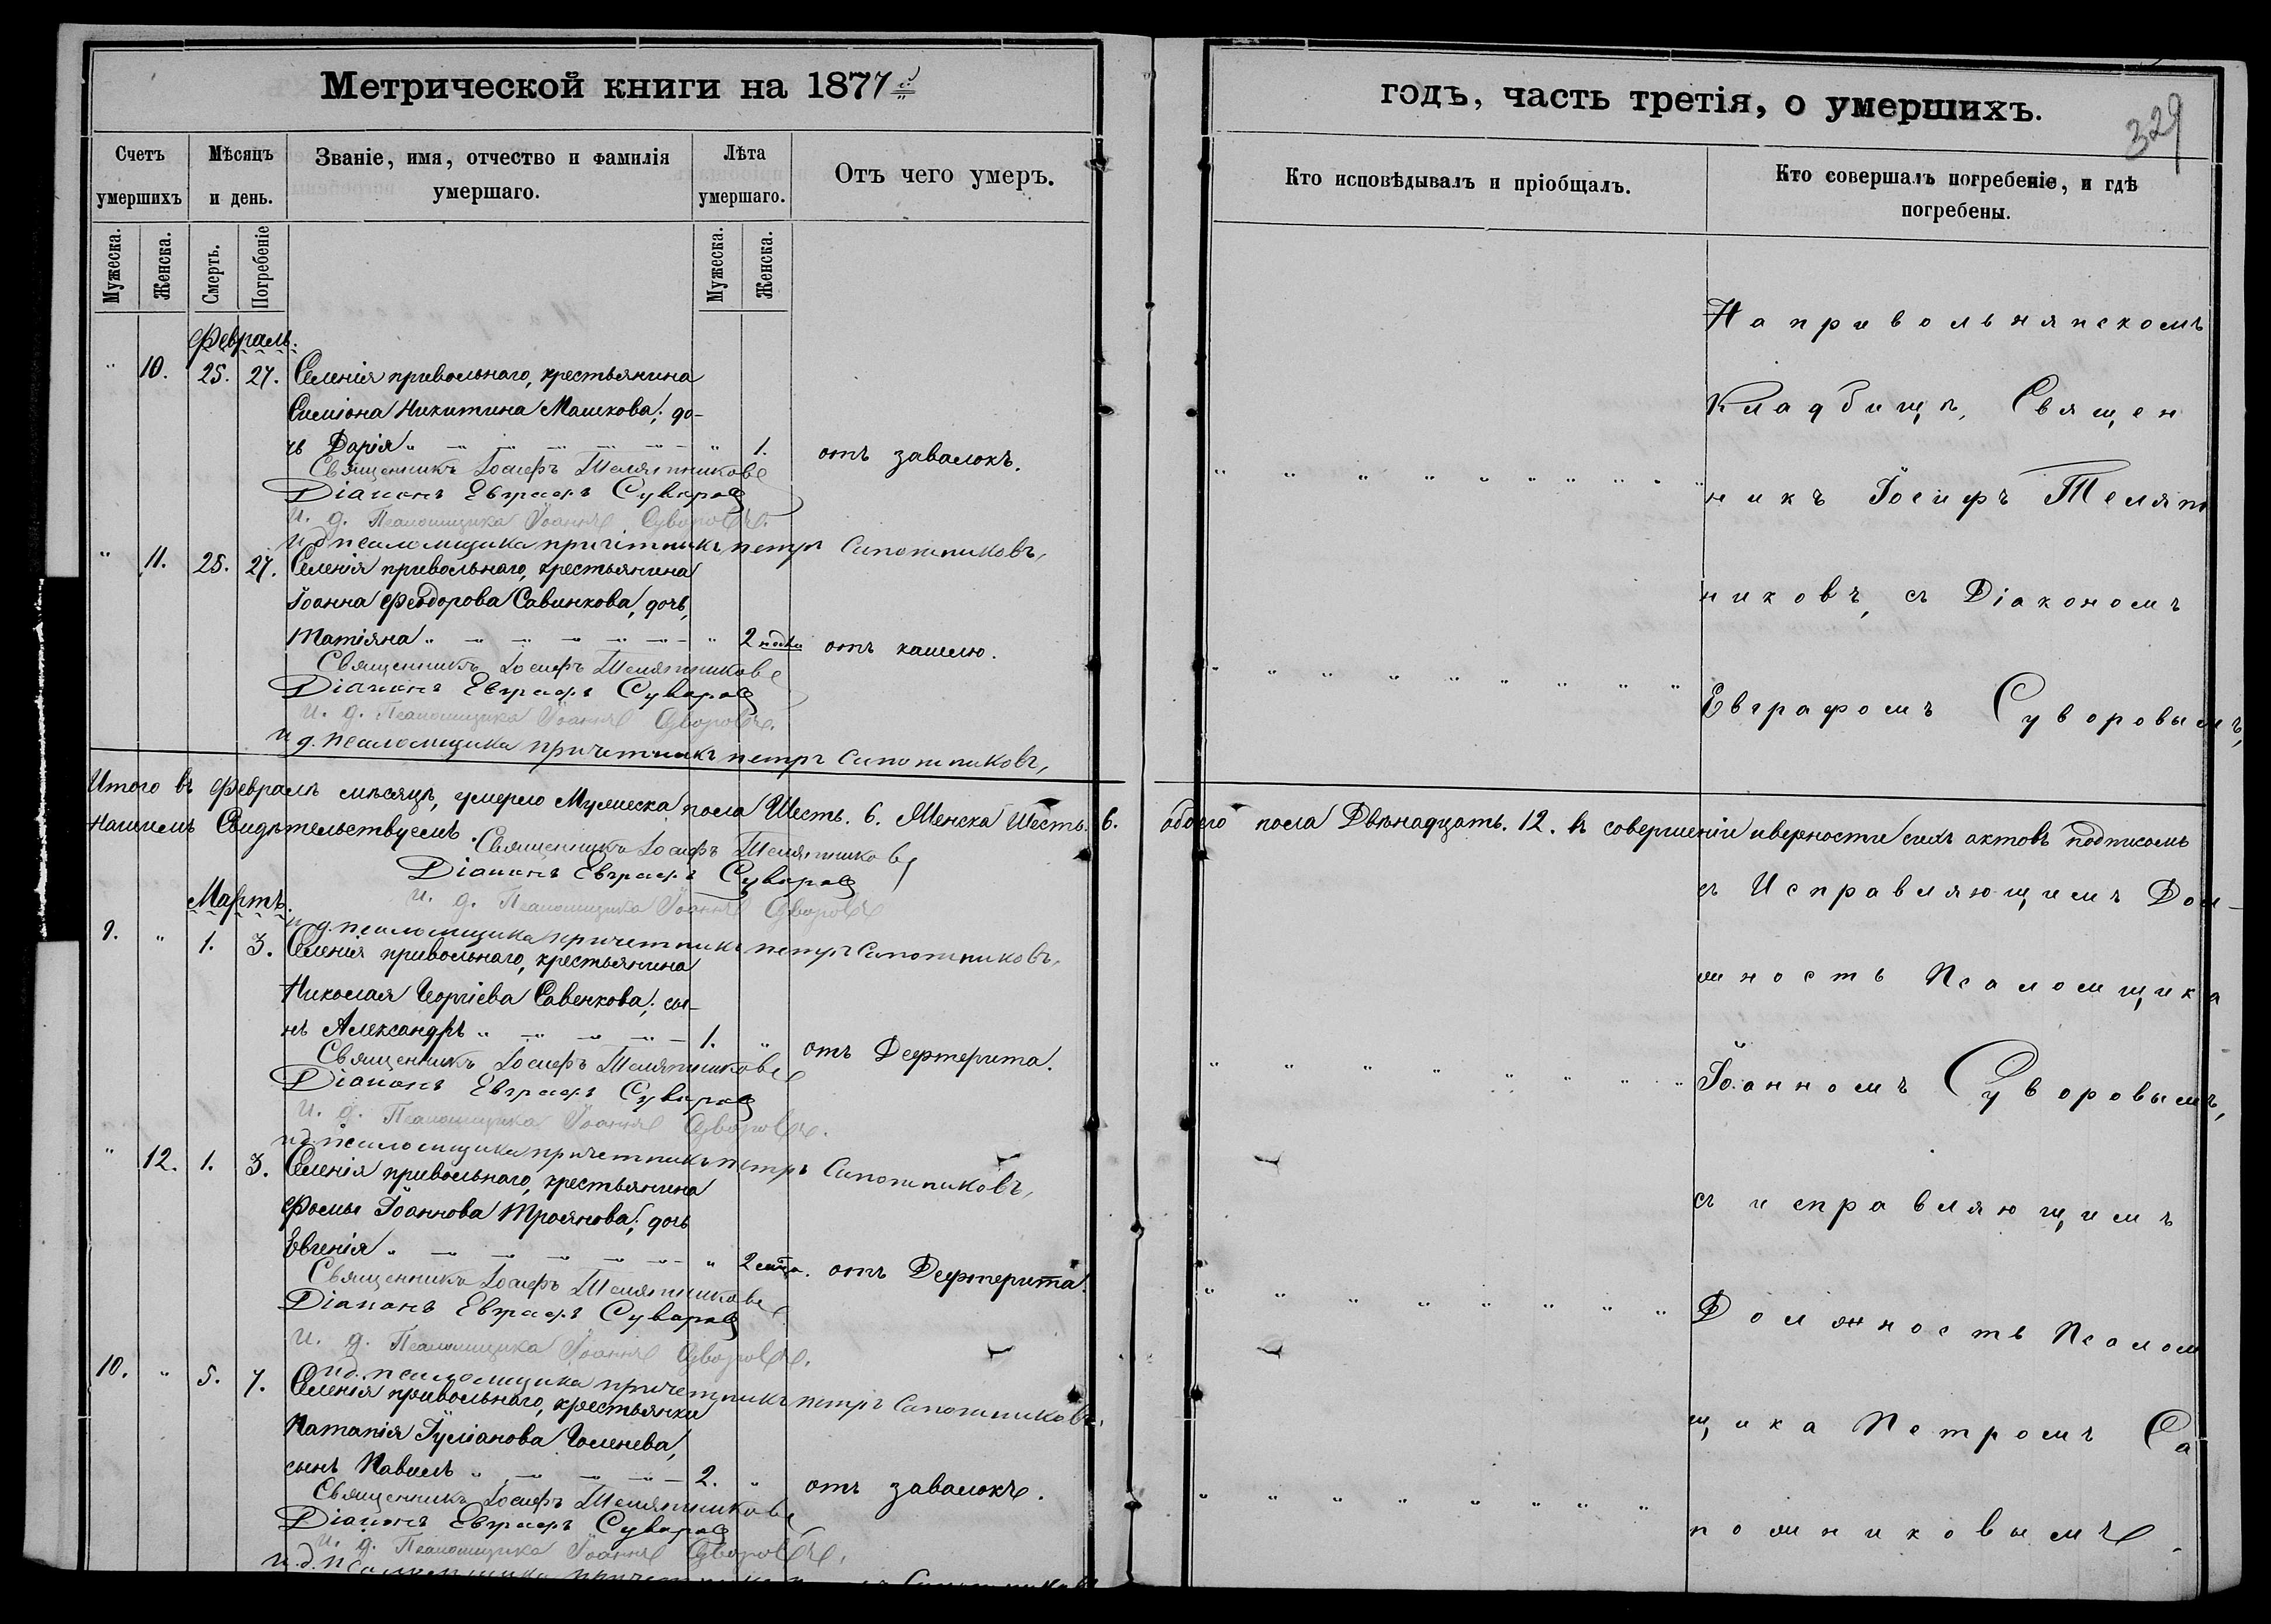 Метрической книги на 1877 й
Счетъ умершихъ
Мѣсяцъ и день.
Званіе, имя, отчество и фамилія умершаго.
Лѣта умершаго.
Отъ чего умеръ.
Мужеска.
Женска.
Смерть.
Погребеніе
Мужеска.
Женска.
Февраль.
" 10. 25. 27. Селенія привольнаго, крестьянина
Симіона Никитина Машкова; до-
чь Дарія " " 1. отъ завалокъ.
Священникъ Іосифъ Телятниковъ
Діаконъ Евграфъ Суворовъ
И. д. Псаломщика Іоаннъ Суворовъ.
И д псаломщика причетникъ петръ Сапожниковъ,
" 11. 25. 27. Селенія привольнаго, крестьянина
Іоанна Феодорова Савинкова, дочь,
Татіяна " " 2 отъ кашлю.
Священникъ Іосифъ Телятниковъ
Діаконъ Евграфъ Суворовъ
И. д. Псаломщика Іоаннъ Суворовъ.
и д. псаломщика причетникъ петръ Сапожниковъ,
Итого въ Февралѣ мѣсяцѣ, умерло Мужеска пола Шесть. 6. Женска Шесть. 6.
нашимъ Свидѣтельствуемъ. Священникъ Іосифъ Телятниковъ
Діаконъ Евграфъ Суворовъ
И. д. Псаломщика Іоаннъ Суворовъ
и д. псаломщика причетникъ петръ Сапожниковъ,
Мартъ.
9. " 1. 3. Селенія привольнаго, крестьянина
Николая Георгіева Савенкова; сы-
нъ Александръ " 1. " отъ Дефтерита.
Священникъ Іосифъ Телятниковъ
Діаконъ Евграфъ Суворовъ
И. д. Псаломщика Іоаннъ Суворовъ.
и д. псаломщика причетникъ петръ Сапожниковъ,
" 12. 1. 3. Селенія привольнаго, крестьянина
Фомы Іоаннова Троянова; дочь
Евгенія " " 2 отъ Дефтерита.
Священникъ Іосифъ Телятниковъ
Діаконъ Евграфъ Суворовъ
И. д. Псаломщика Іоаннъ Суворовъ.
и д. псаломщика причетникъ петръ Сапожниковъ,
10. " 5. 7. Селенія привольнаго, крестьянки
Наталія Гуліанова
сынъ Павелъ " 2. " отъ завалокъ.
Священникъ Іосифъ Телятниковъ
Діаконъ Евграфъ Суворовъ
И. д. Псаломщика Іоаннъ Суворовъ.
и. д. псаломщика
годъ, часть третія, о умершихъ.
329
Кто исповѣдывалъ и пріобщалъ.
Кто совершалъ погребеніе, и гдѣ погребены.
На привольнянскомъ
Кладбищѣ, Священ
никъ Іосифъ Телят
никовъ, съ Діакономъ
Евграфомъ Суворовымъ,
обоего пола Двѣнадцать. 12. въ совершеніи иверности сихъ актовъ подписомъ
съ Исправляющимъ Дол-
жность Псаломщика
Іоанномъ Суворовымъ,
съ исправляющимъ
Должность Псалом
щика Петромъ Са
пожниковымъ.